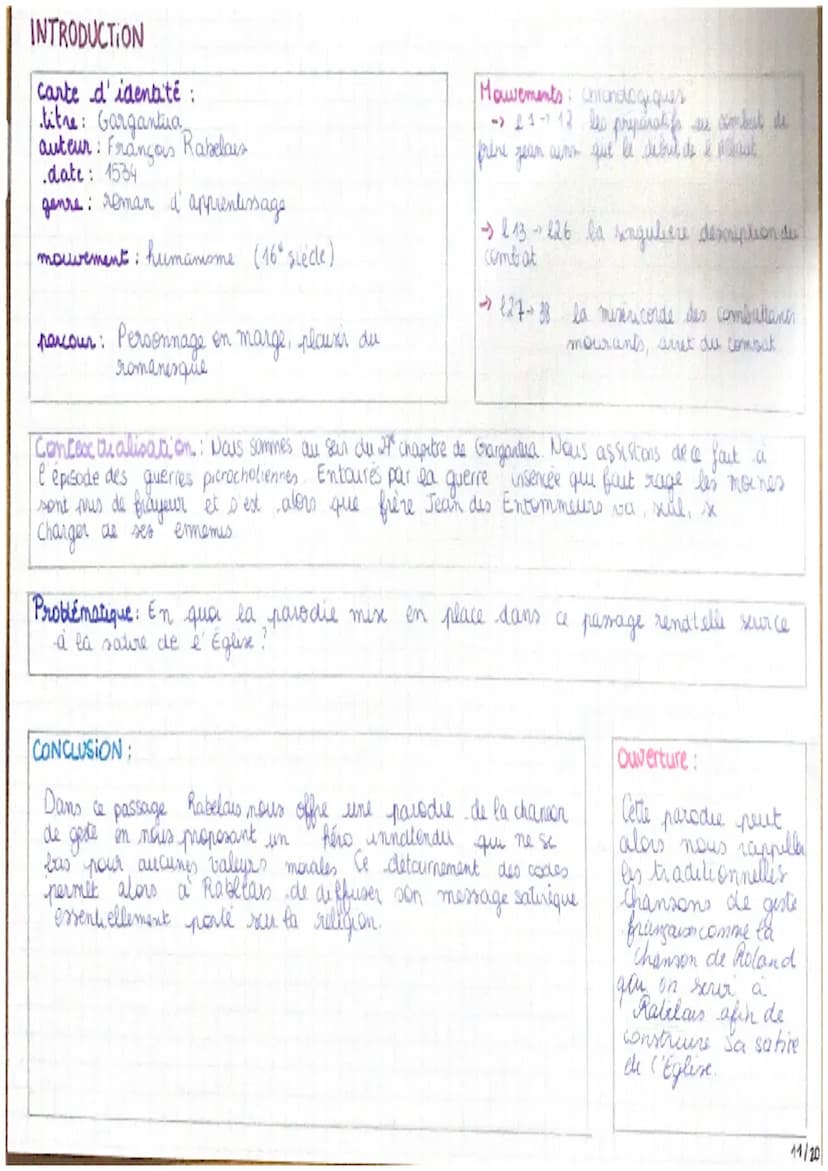 INTRODUCTION
Carte d'identité :
.titre : Gargantua
auteur : François Rabelais
.date : 1534
genre : roman d'apprentissage
mouvement : humanisme (16e siècle)
parcour : Personnage en marge, plaisir du
romanesque
Mouvements : chronologiques
-> l 1 -> 12 les préparatifs au combat de
frère jean ainsi que le debut de l'
-> l 13 -> l26 la singulière description du
combat
-> l27 -> 38 la miséricorde des combattants
mourants, arret du combat
Contextualisation : Nous sommes au sein du 27e chapitre de Gargantua. Nous assistons de ce fait à
l'épisode des guerres picrocholiennes. Entourés par la guerre insencée qui fait rage les moines
sont pris de frayeur et s'est alors que frère Jean des Entommeurs va, seul, se
charger de ses ennemis
Problématique : En quoi la parodie mise en place dans ce passage rendtelle
à la satire de l'Eglise ?
CONCLUSION :
Dans ce passage Rabelais nous offre une parodie de la chanson
de geste en nous proposant un héro innatendu qui ne se
bas pour aucunes valeurs morales. Ce détournement des codes
permet alors à Rabelais de diffuser son message satirique
essentiellement porté sur la religion.
Ouverture :
Cette parodie peut
alors nous rappeller
les traditionnelles
chansons de geste
comme la
Chanson de Roland
qui on servi à
Rabelais afin de
construire sa satire
de l'Église.
11/20